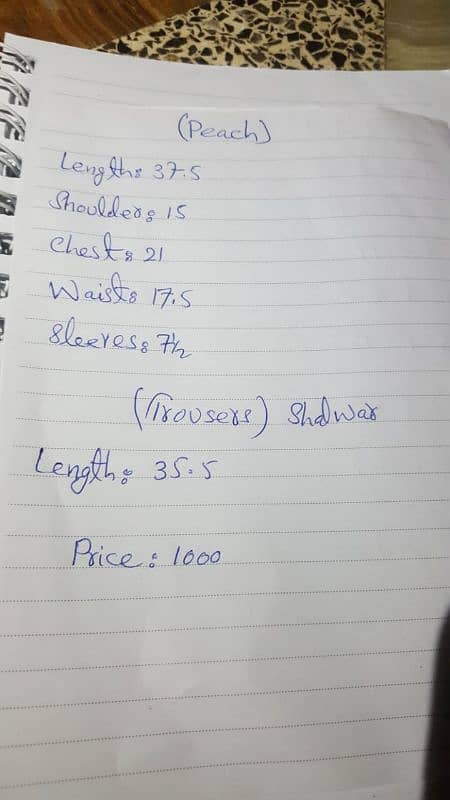 (Peach)
Length: 37.5
Shoulder: 15
Chest: 21
Waist: 17.5
Sleeves: 7½
(Trousers) Shalwar
Length: 35.5
Price: 1000